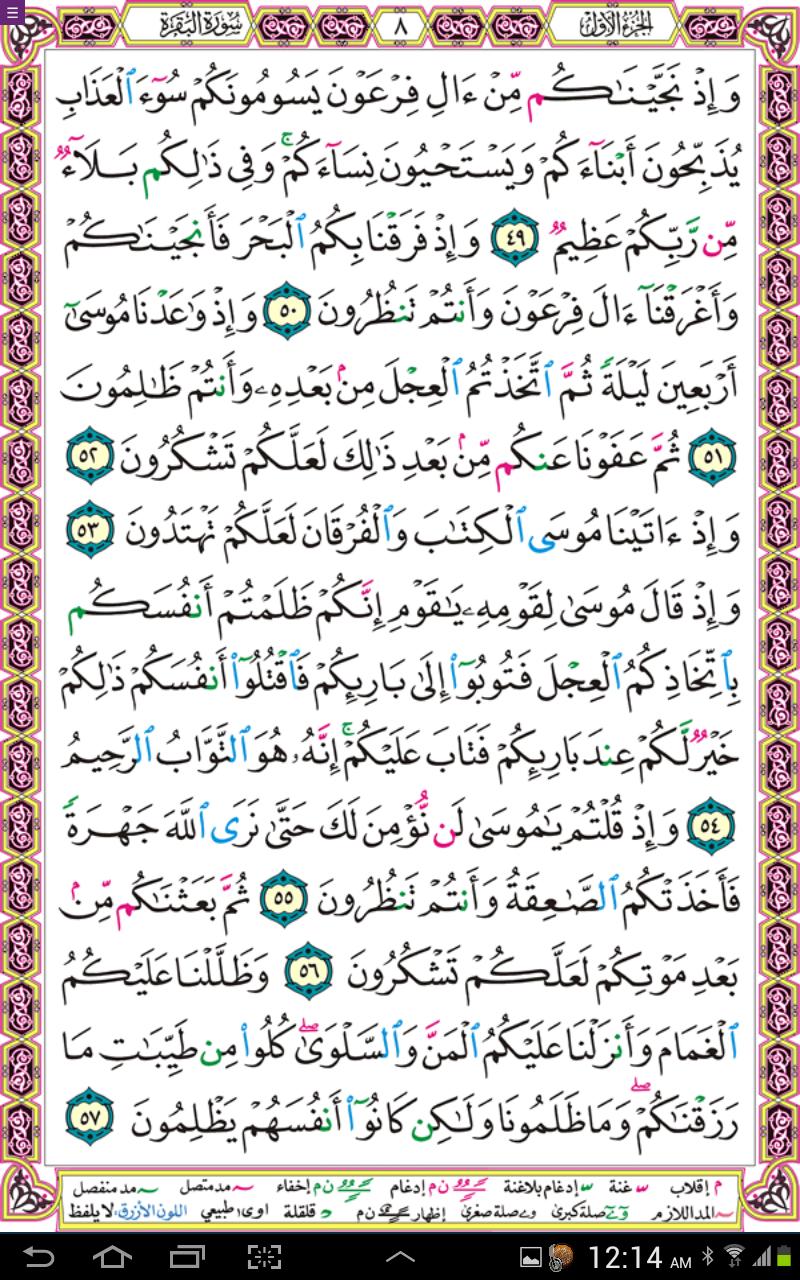 الجزء الأول
٨
سورة البقرة
وَإِذْ نَجَّيْنَٰكُم مِّنْ ءَالِ فِرْعَوْنَ يَسُومُونَكُمْ سُوٓءَ ٱلْعَذَابِ
يُذَبِّحُونَ أَبْنَآءَكُمْ وَيَسْتَحْيُونَ نِسَآءَكُمْ ۚ وَفِى ذَٰلِكُم بَلَآءٌ
مِّن رَّبِّكُمْ عَظِيمٌ ٤٩ وَإِذْ فَرَقْنَا بِكُمُ ٱلْبَحْرَ فَأَنجَيْنَٰكُمْ
وَأَغْرَقْنَآ ءَالَ فِرْعَوْنَ وَأَنتُمْ تَنظُرُونَ ٥٠ وَإِذْ وَٰعَدْنَا مُوسَىٰٓ
أَرْبَعِينَ لَيْلَةً ثُمَّ ٱتَّخَذْتُمُ ٱلْعِجْلَ مِنۢ بَعْدِهِۦ وَأَنتُمْ ظَٰلِمُونَ
٥١ ثُمَّ عَفَوْنَا عَنكُم مِّنۢ بَعْدِ ذَٰلِكَ لَعَلَّكُمْ تَشْكُرُونَ ٥٢
وَإِذْ ءَاتَيْنَا مُوسَى ٱلْكِتَٰبَ وَٱلْفُرْقَانَ لَعَلَّكُمْ تَهْتَدُونَ ٥٣
وَإِذْ قَالَ مُوسَىٰ لِقَوْمِهِۦ يَٰقَوْمِ إِنَّكُمْ ظَلَمْتُمْ أَنفُسَكُم
بِٱتِّخَاذِكُمُ ٱلْعِجْلَ فَتُوبُوٓا۟ إِلَىٰ بَارِئِكُمْ فَٱقْتُلُوٓا۟ أَنفُسَكُمْ ذَٰلِكُمْ
خَيْرٌ لَّكُمْ عِندَ بَارِئِكُمْ فَتَابَ عَلَيْكُمْ ۚ إِنَّهُۥ هُوَ ٱلتَّوَّابُ ٱلرَّحِيمُ
٥٤ وَإِذْ قُلْتُمْ يَٰمُوسَىٰ لَن نُّؤْمِنَ لَكَ حَتَّىٰ نَرَى ٱللَّهَ جَهْرَةً
فَأَخَذَتْكُمُ ٱلصَّٰعِقَةُ وَأَنتُمْ تَنظُرُونَ ٥٥ ثُمَّ بَعَثْنَٰكُم مِّنۢ
بَعْدِ مَوْتِكُمْ لَعَلَّكُمْ تَشْكُرُونَ ٥٦ وَظَلَّلْنَا عَلَيْكُمُ
ٱلْغَمَامَ وَأَنزَلْنَا عَلَيْكُمُ ٱلْمَنَّ وَٱلسَّلْوَىٰ ۖ كُلُوا۟ مِن طَيِّبَٰتِ مَا
رَزَقْنَٰكُمْ ۖ وَمَا ظَلَمُونَا وَلَٰكِن كَانُوٓا۟ أَنفُسَهُمْ يَظْلِمُونَ ٥٧
م إقلاب غنة إدغام بلاغنة ن م إدغام ن م إخفاء مد متصل مد منفصل
المد اللازم صلة كبرى صلة صغرى إظهار ن م قلقلة اوى طبيعي اللون الأزرق، لا يلفظ
12:14 AM